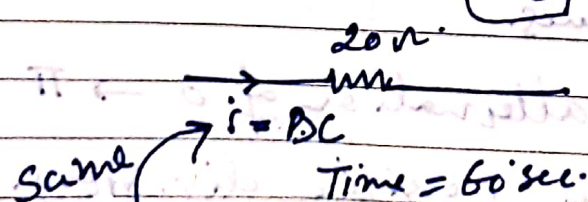 20 Ω
i = DC
same
Time = 60 sec.